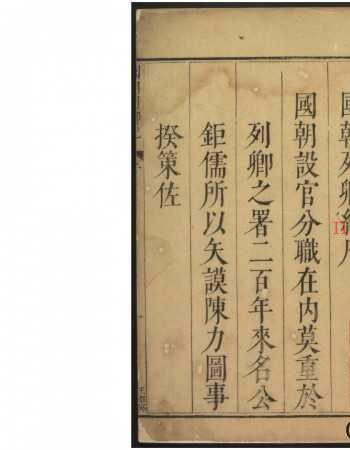 國朝列卿紀
國朝設官分職在内莫重於
列卿之署二百年來名公
鉅儒所以矢謨陳力圖事
揆策佐